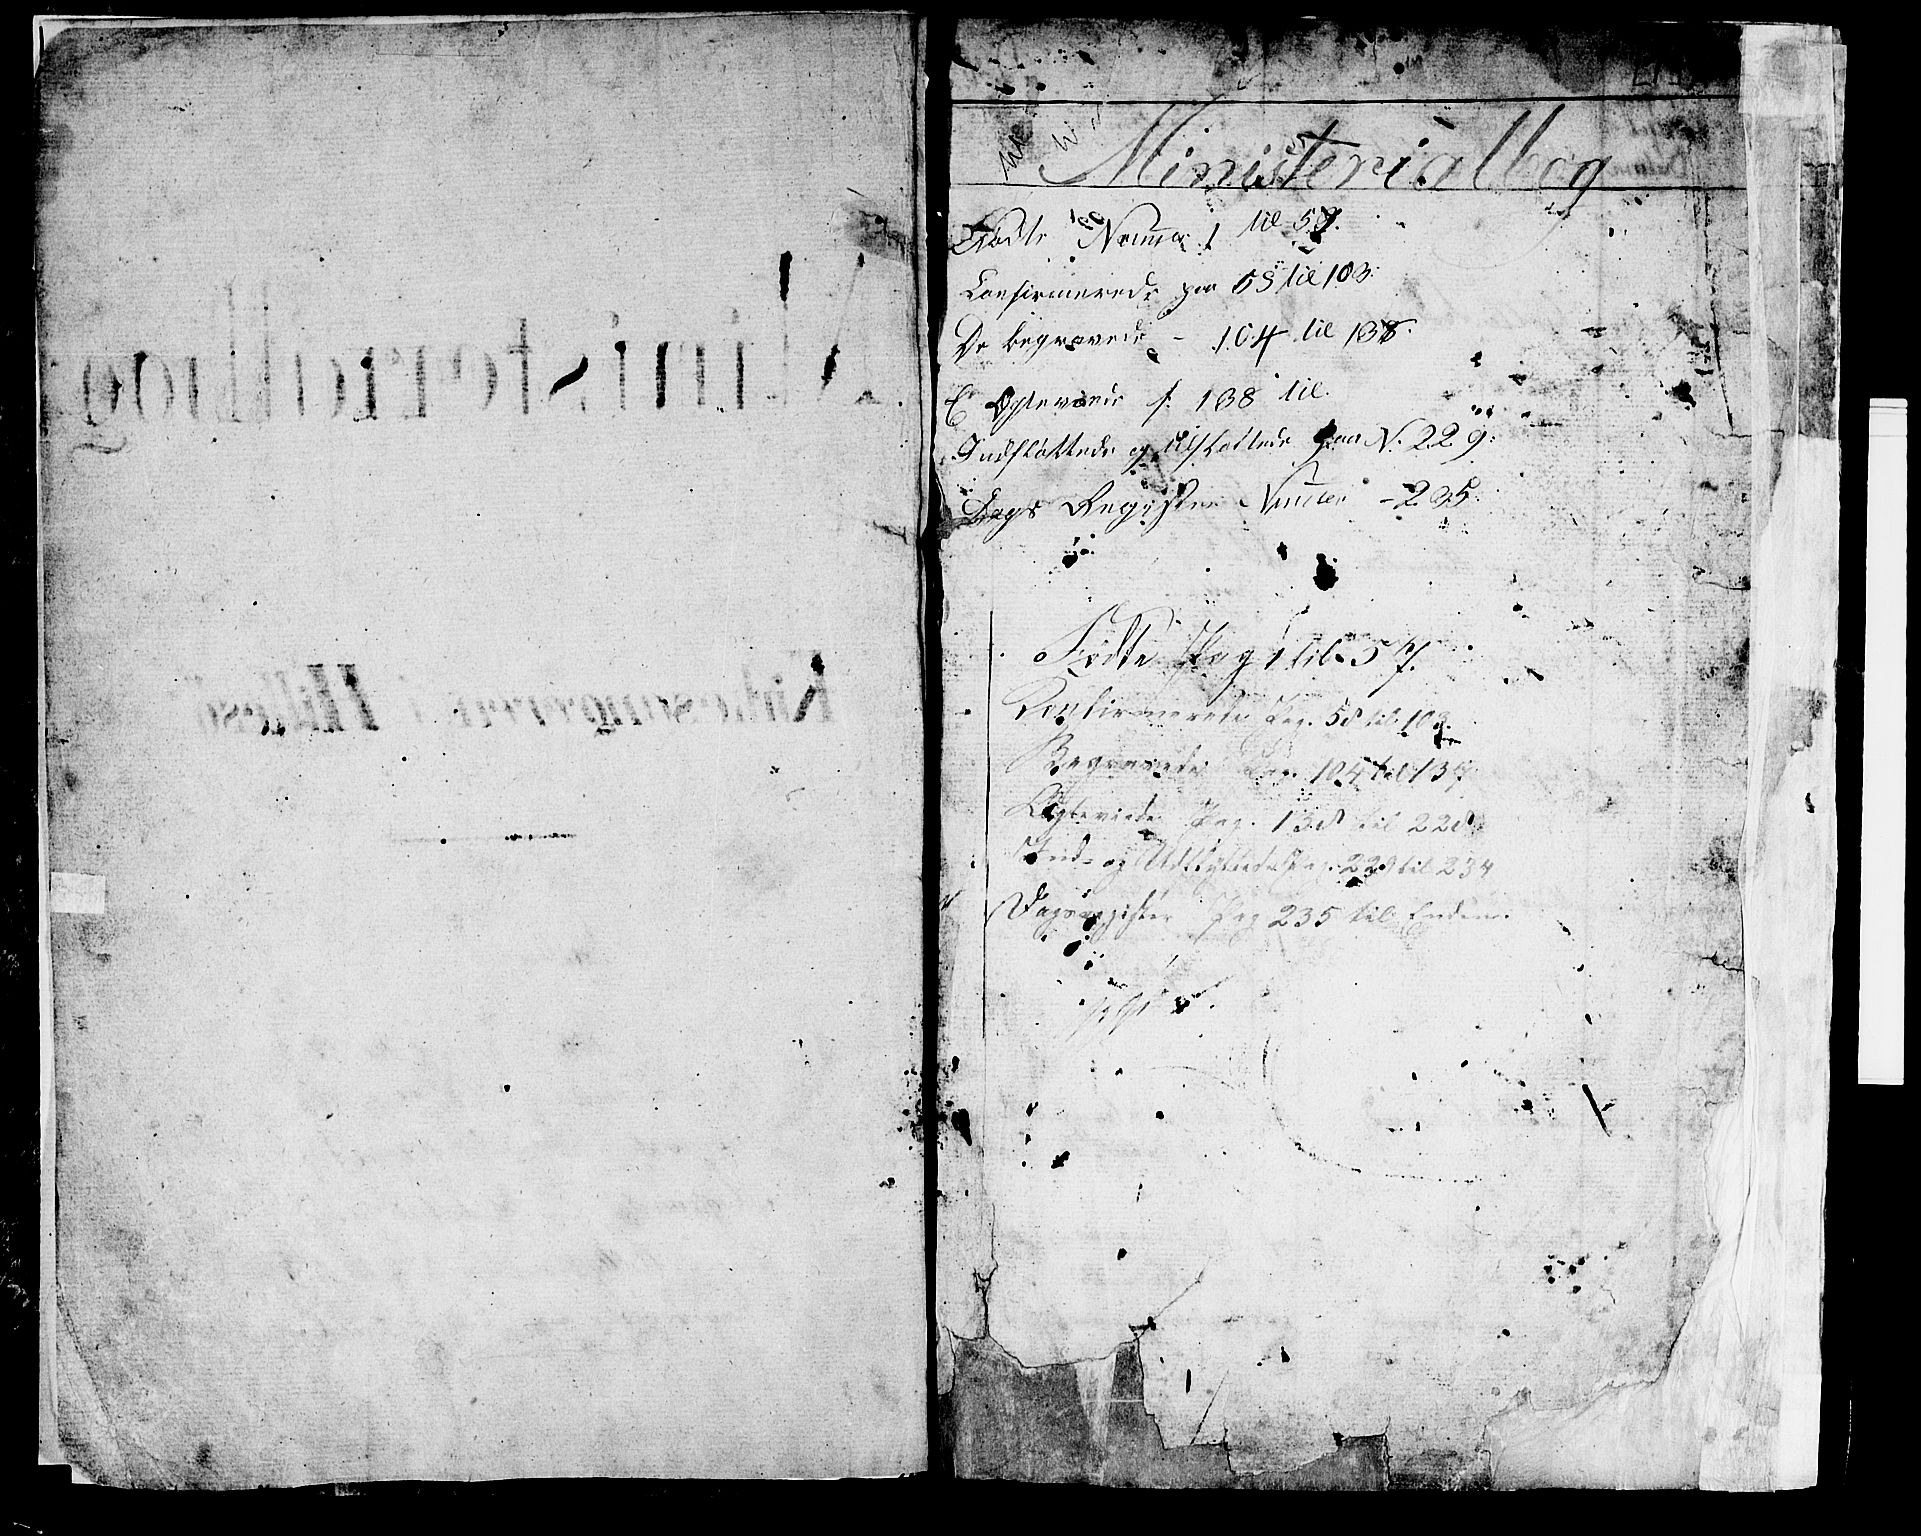 Ministerialbog
Kirkesangeren i Hillesø
Ministerialbog
Fødte Numer 1 til 57.
Confirmerede paa 58 til 103.
De begravede - 104 til 138.
E Ægteviede f. 138 til.
Indfløttede og Udfløttede paa N. 229.
Dags Register Numer - 235.
Fødte Pag 1 til 57.
Konfirmerede Pag. 58 til 103.
Begravede Pag. 104 til 137
Ægteviede Pag. 138 til 228
Ind- og Udflyttede Pag. 229 til 234
Dagsregister Pag 235 til Enden.